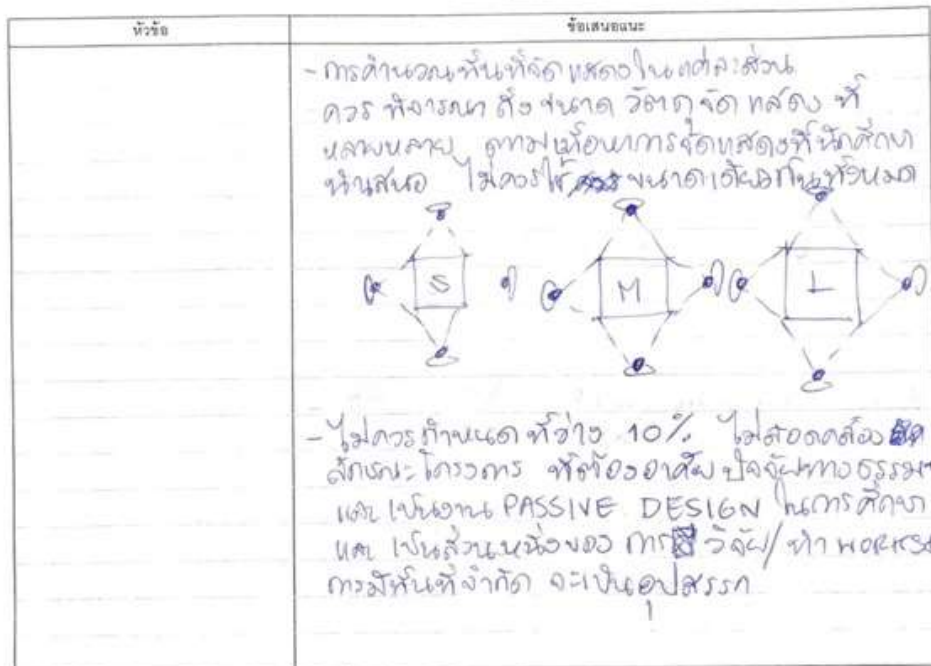 หัวข้อ
ข้อเสนอแนะ
- การคำนวณพื้นที่จัดแสดงในแต่ละส่วน
ควรพิจารณาถึงขนาดวัตถุจัดแสดง ที่
หลายหลาย ตามเนื้อหาการจัดแสดงที่นักศึกษา
นำเสนอ ไม่ควรใช้ ขนาดเดียวกันทั้งหมด
S
M
L
- ไม่ควรกำหนดที่ว่าง 10% ไม่สอดคล้อง
ลักษณะโครงการ ที่ต้องอาศัยปัจจัยทางธรรม
และเป็นงาน PASSIVE DESIGN ในการศึกษา
และ เป็นส่วนหนึ่งของ การ วิจัย/ทำ WORKS
การมีพื้นที่จำกัด จะเป็นอุปสรรค